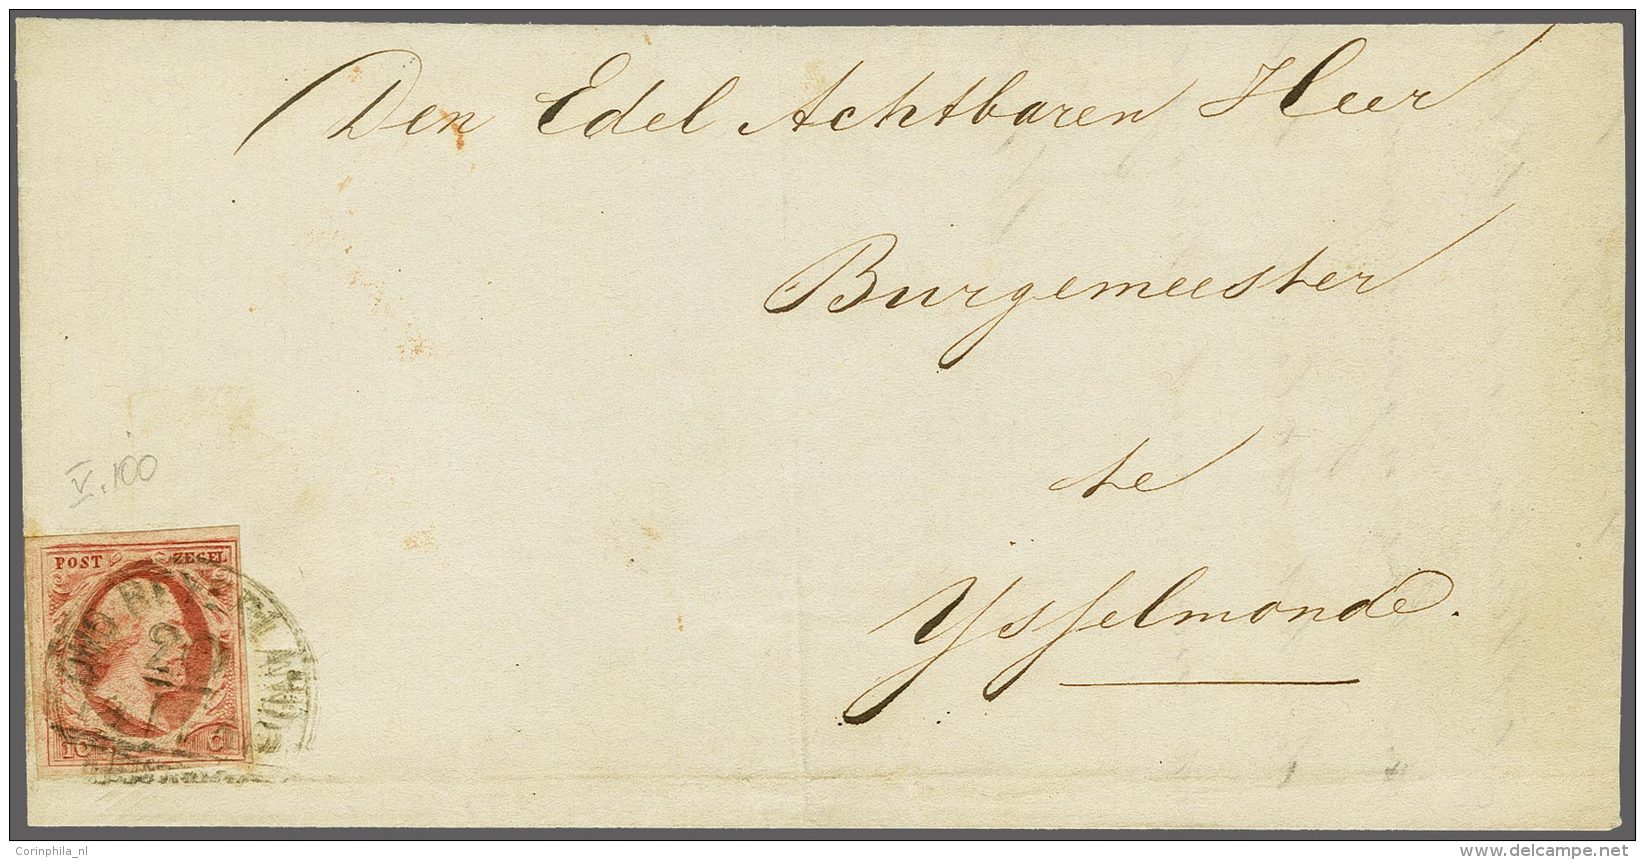 Den Edel Achtbaren Heer
Burgemeester
te
Ysselmonde.
V.100
POST ZEGEL
10 C
Corinphila_nl
delcampe.net